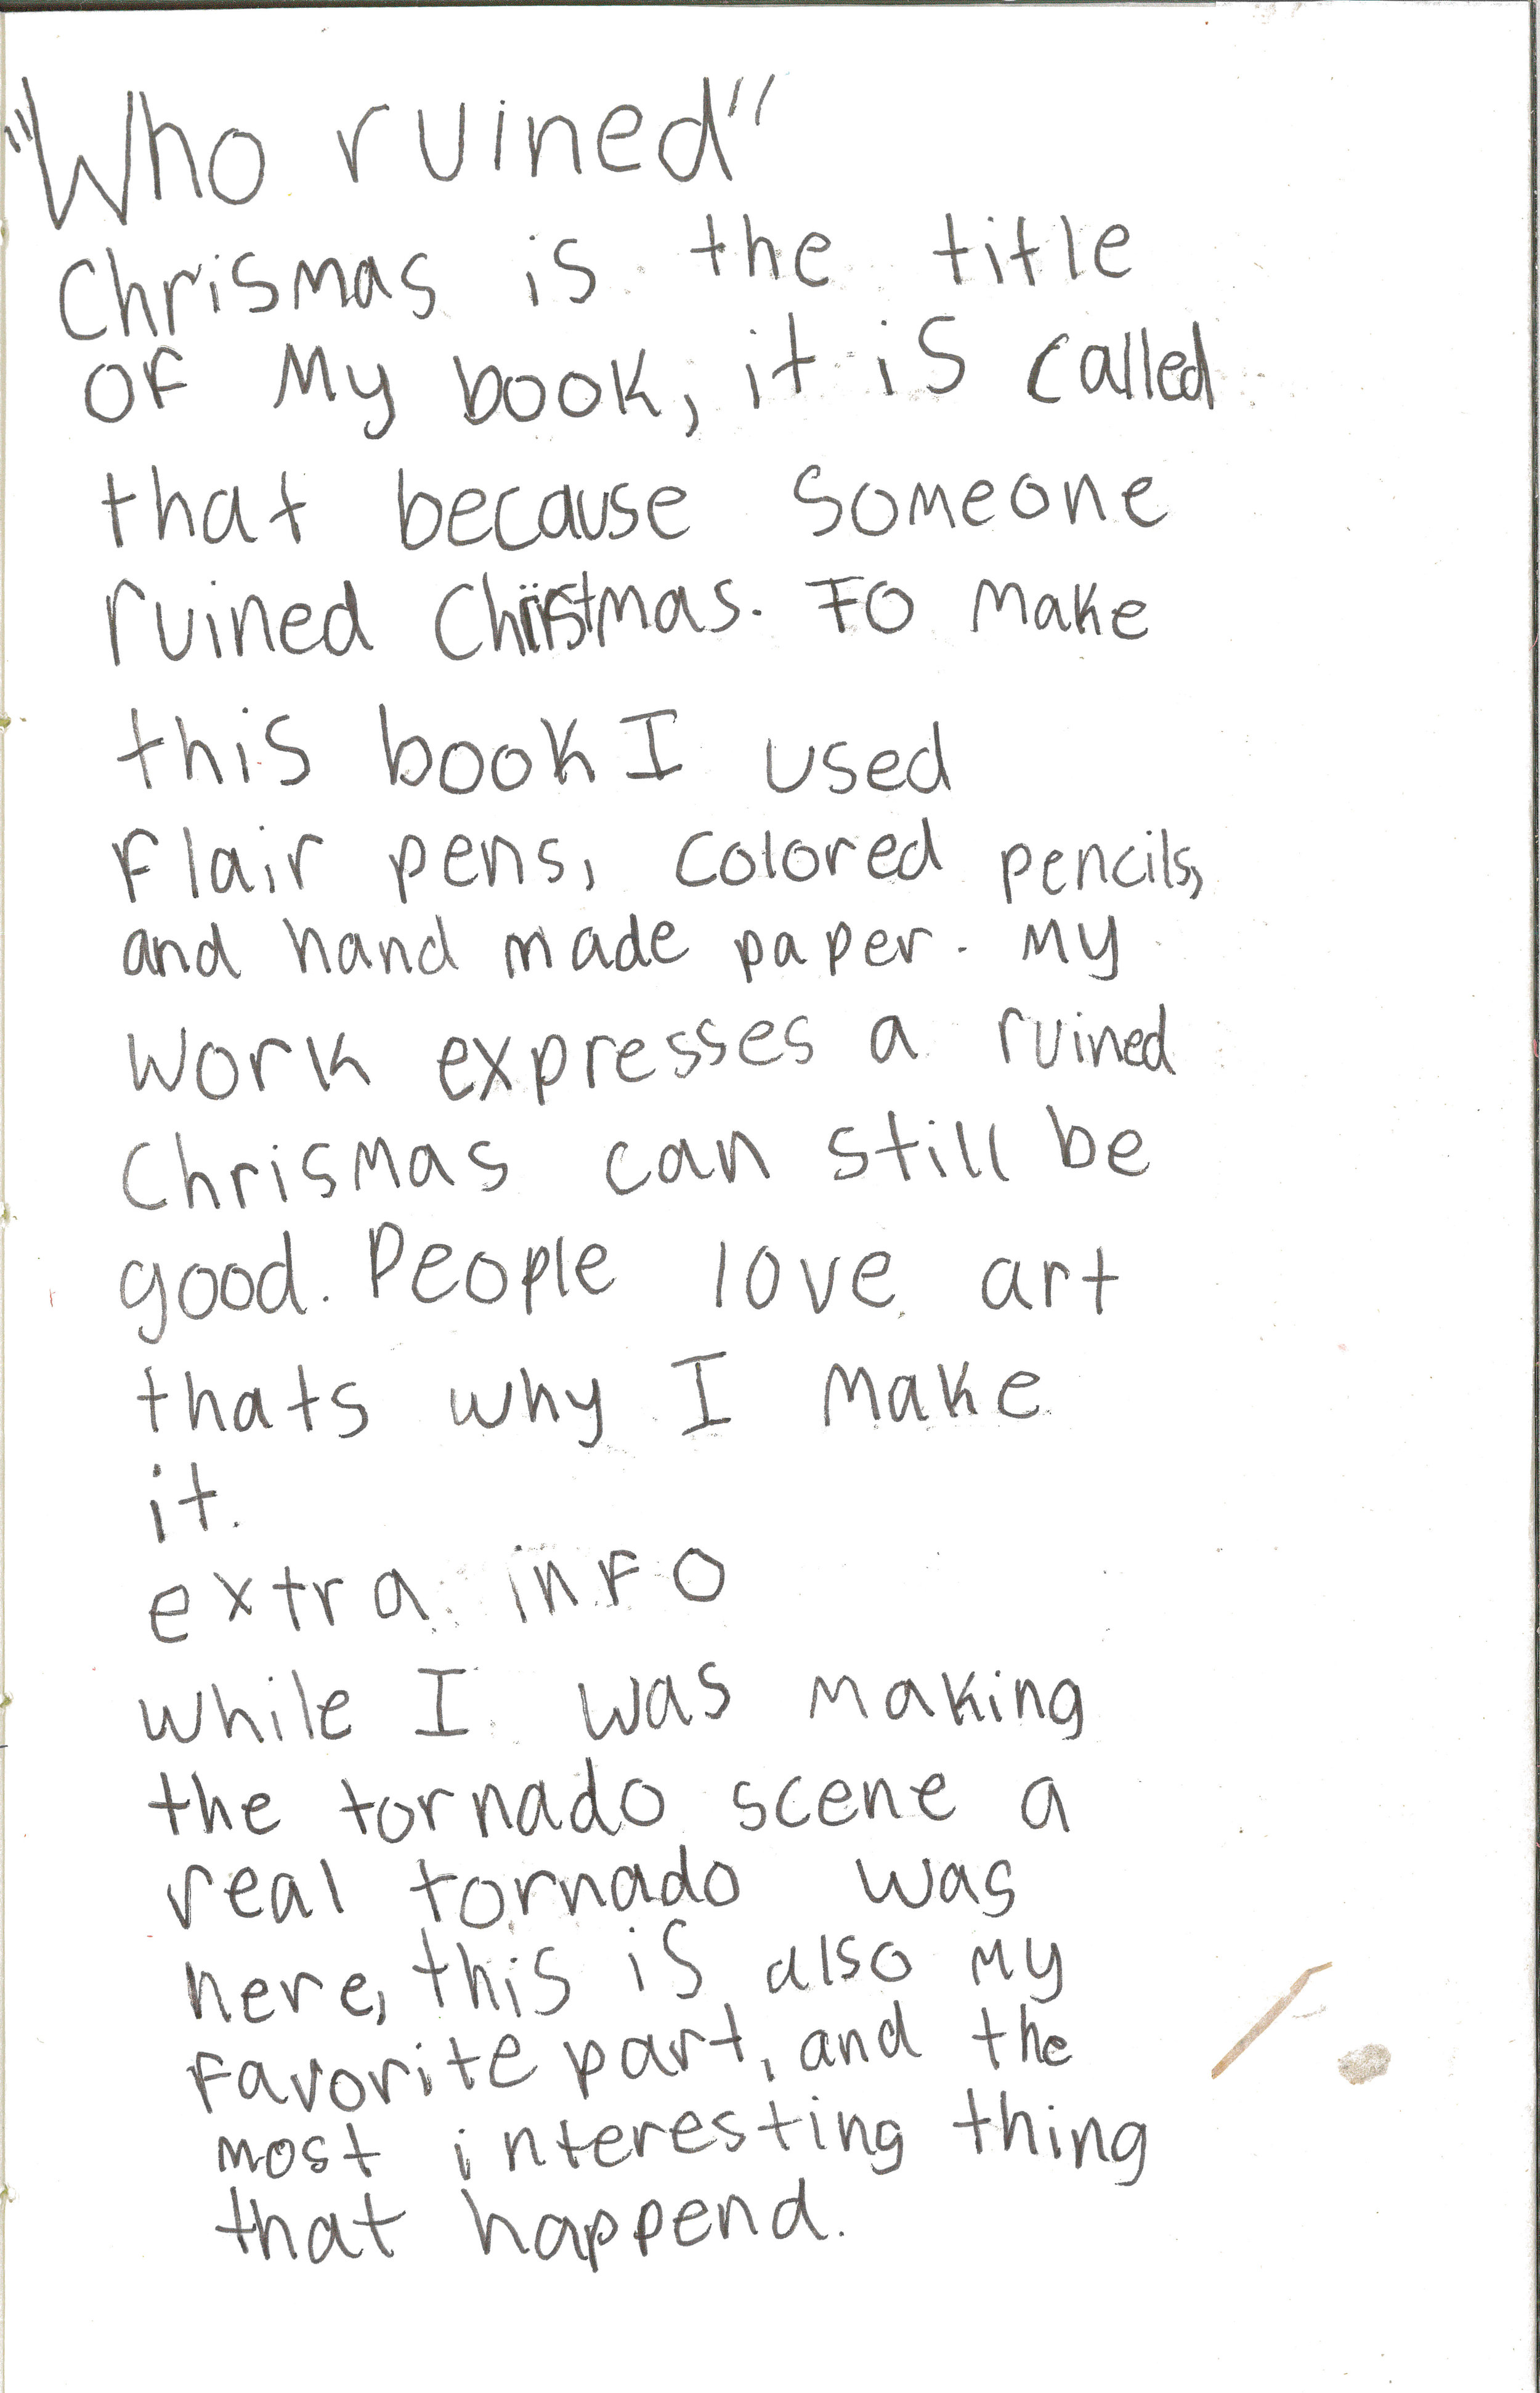 "Who ruined"
Chrismas is the title
of My book, it is called
that because someone
ruined Christmas. To make
this book I used
Flair pens, colored pencils,
and hand made paper. My
work expresses a ruined
Chrismas can still be
good. People love art
thats why I make
it.
extra info
while I was making
the tornado scene a
real tornado was
here, this is also my
favorite part, and the
most interesting thing
that happend.